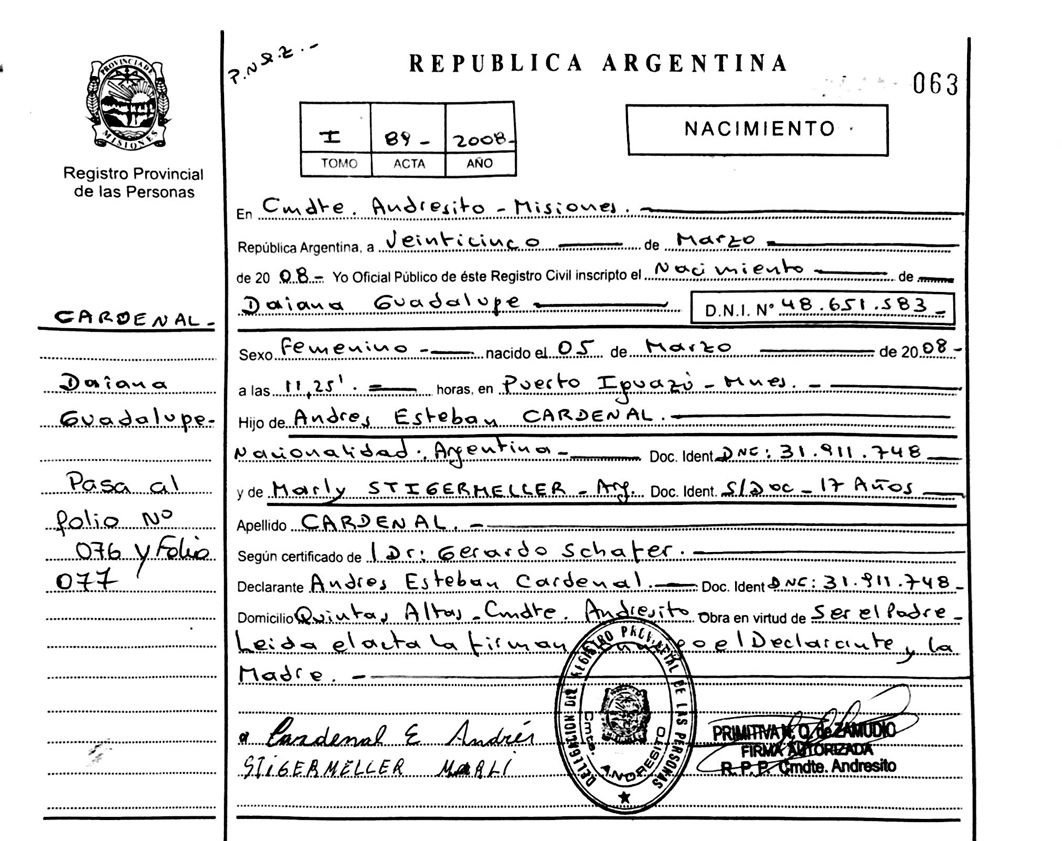 P.N.R.Z.-
REPUBLICA ARGENTINA
063
PROVINCIA DE MISIONES
Registro Provincial
de las Personas
I 89- 2008-
TOMO ACTA AÑO
NACIMIENTO
En Cmdte. Andresito - Misiones.
República Argentina, a Veinticinco de Marzo
de 20 08- Yo Oficial Público de éste Registro Civil inscripto el Nacimiento de
Daiana Guadalupe D.N.I. Nº 48.651.583-
CARDENAL-
Daiana
Guadalupe-
Pasa al
folio Nº
076 y Folio
077
Sexo Femenino - nacido el 05 de Marzo de 20 08-
a las 11,25'. horas, en Puerto Iguazú - Mnes. -
Hijo de Andres Esteban CARDENAL.
Nacionalidad. Argentina - Doc. Ident DNC: 31.911.748
y de Marly STIGERMELLER - Arg. Doc. Ident. S/Doc - 17 Años
Apellido CARDENAL. -
Según certificado de Dr: Gerardo Schafer.
Declarante Andres Esteban Cardenal. Doc. Ident DNC: 31.911.748-
Domicilio Quintas Altas - Cmdte. Andresito Obra en virtud de Ser el Padre -
Leida el acta la firman el Declarante y la
Madre. -
Cardenal E Andrés
STIGERMELLER MARLI
DELEGACION DEL REGISTRO PROVINCIAL DE LAS PERSONAS
Cmte. ANDRESITO
PRIMITIVA N. O. de ZAMUDIO
FIRMA AUTORIZADA
R. P. P. Cmdte. Andresito